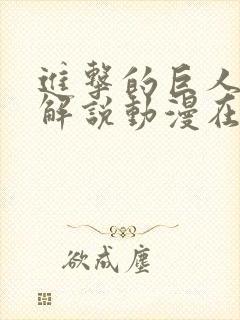 進擊的巨人
解説動漫在
欲成塵